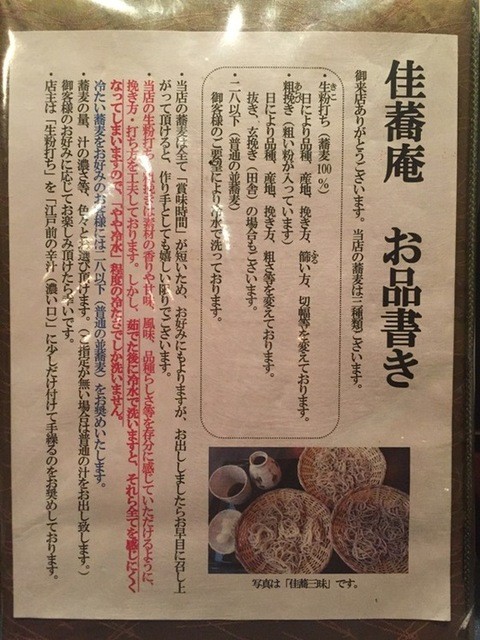 佳蕎庵　お品書き
御来店ありがとうございます。当店の蕎麦は三種類ございます。
・生粉打ち（蕎麦100％）
日により品種、産地、挽き方、篩い方、切幅等を変えております。
・粗挽き（粗い粉が入っています）
日により品種、産地、挽き方、粗さ等を変えております。
抜き、玄挽き（田舎）の場合もございます。
・二八以下（普通の並蕎麦）
御客様のご要望により冷水で洗っております。
・当店の蕎麦は全て「賞味時間」が短いため、お好みにもよりますが、お出ししましたらお早目に召し上
がって頂けると、作り手としても嬉しい限りでございます。
・当店の生粉打ち、粗挽きは素材の香りや甘味、風味、品種らしさ等を存分に感じていただけるように、
挽き方・打ち方を工夫しております。しかし、茹でた後に冷水で洗いますと、それら全てを感じにくく
なってしまいますので、「やや冷水」程度の冷たさでしか洗いません。
冷たい蕎麦をお好みのお客様には二八以下（普通の並蕎麦）をお奨めいたします。
・蕎麦の量、汁の濃さ等、色々とお選び頂けます。（ご指定が無い場合は普通の汁をお出し致します。）
御客様のお好みに応じてお楽しみ頂けたら幸いです。
・店主は「生粉打ち」を「江戸前の辛汁（濃い口）」に少しだけ付けて手繰るのをお奨めしております。
写真は「佳蕎三昧」です。